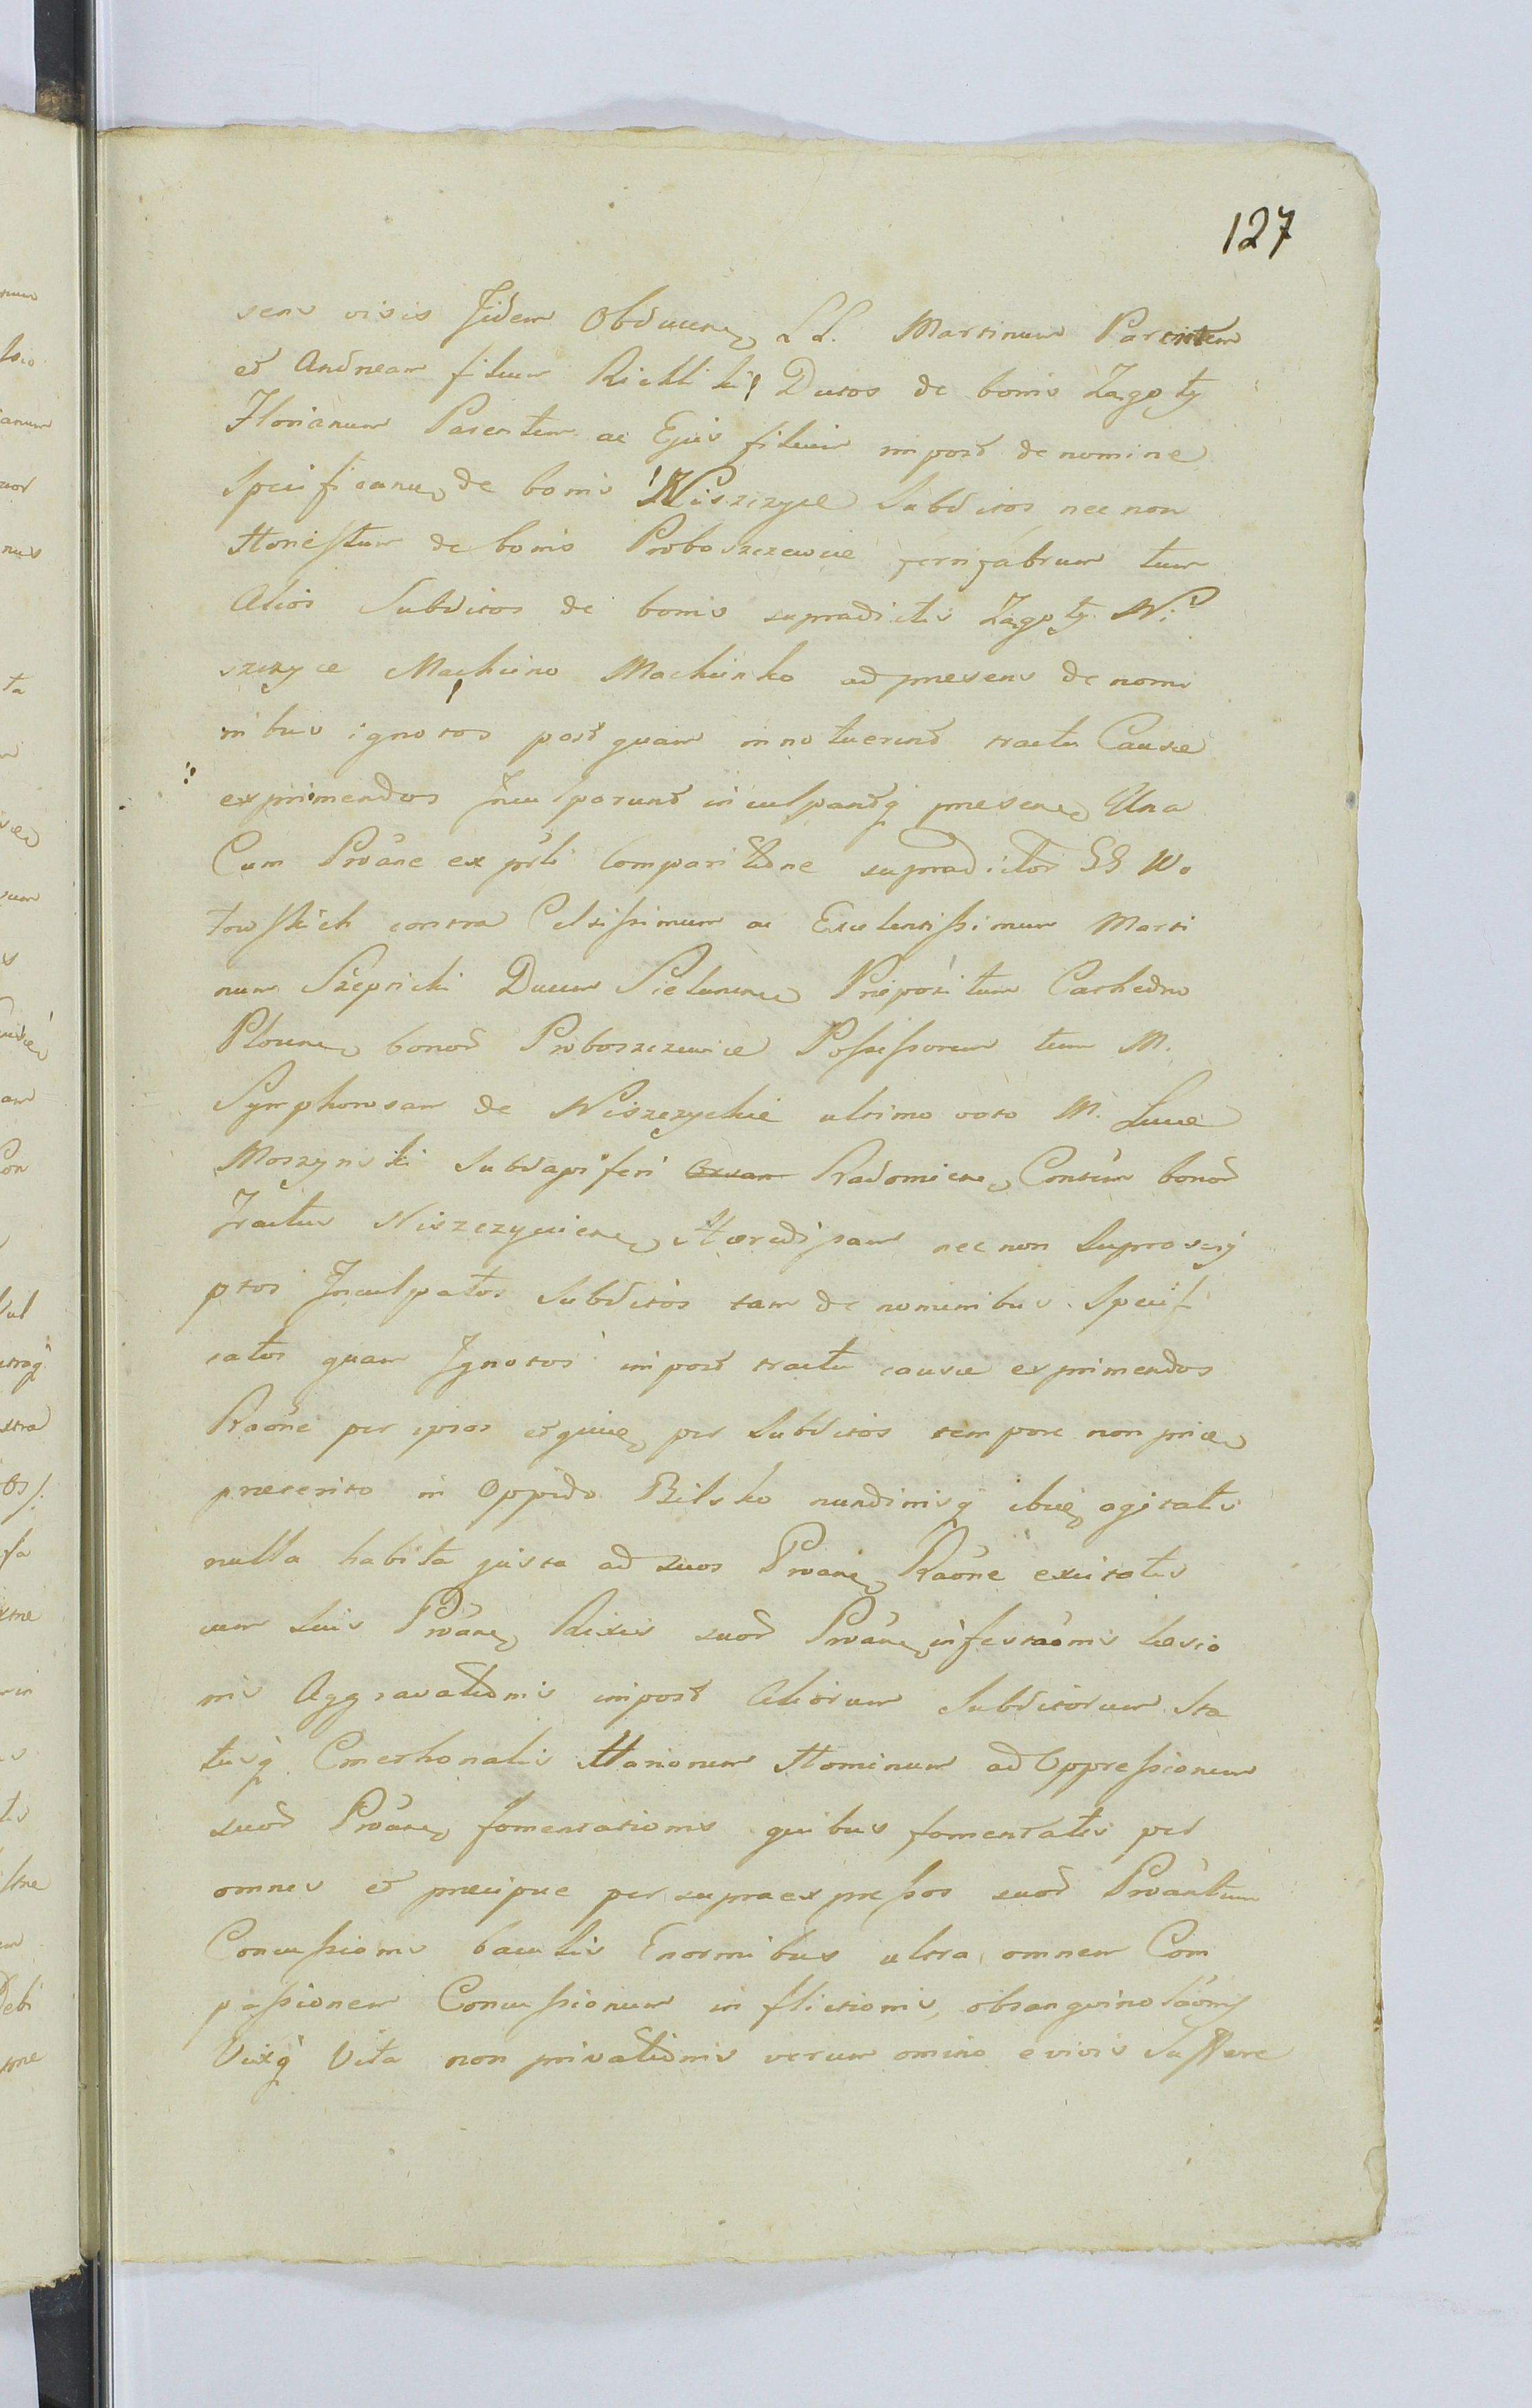 127
sens visis Iidem Obducen LL. Martinum Parentem
et Andream filium Rickliki Ductos de bonis Zagoty
Florianum Parentem ac Ejus filium impost de nomine
Specificanu de bonis Niszczyce Subditos nec non
Honestum de bonis Proboszczewice ferrifabrum tum
Alios Subditos de bonis supradictis Zagoty Ni
szczyce Machcino Machcinko ad presens de nomi
nibus ignotos postquam innotuerint tractu Causæ
exprimendos Inculparunt inculpantq presen Una
Cum Proâne ex pñti Comparitione supradictor GG Wo
towskich contra Celsissimum ac Excelentissimum Marti
num Rzepnicki Ducem Sielunen Præpositum Cathedra
Plocen bonor Proboszczewice Possessorem tum M.
Symphorosam de Niszczyckie ultimo voto M. Lucæ
Moszynski Subdapiferi Radomien Contêm bonor
Tractus Niszczycien Hæredissam nec non Suprascri
ptos Inculpatos Subditos tam de nominibus Specifi
catos quam Ignotos impost tractu causæ exprimendos
Raône per ipsos et quive per Subditos tempore non price
præterito in Oppido Bilsko nundinisq ibide agitatis
nulla habita justa ad suos Proane Raône excitatis
cum suis Proâne Rixis suor Proâne infestaônis læsio
nis Aggravationis impost Aliorum Subditorum Sta
tusq Cmethonalis Variorum Hominum ad Oppressionem
suor Proâne fomentationis quibus fomentatis per
omnes et precipue per supraexpressos suor Proântium
Concussionis baculis Enormibus ultra omnem Com
passionem Concussionum inflictionis, obsanguinolâonis
Vixq Vita non privationis verum omino e vivis Sufferre